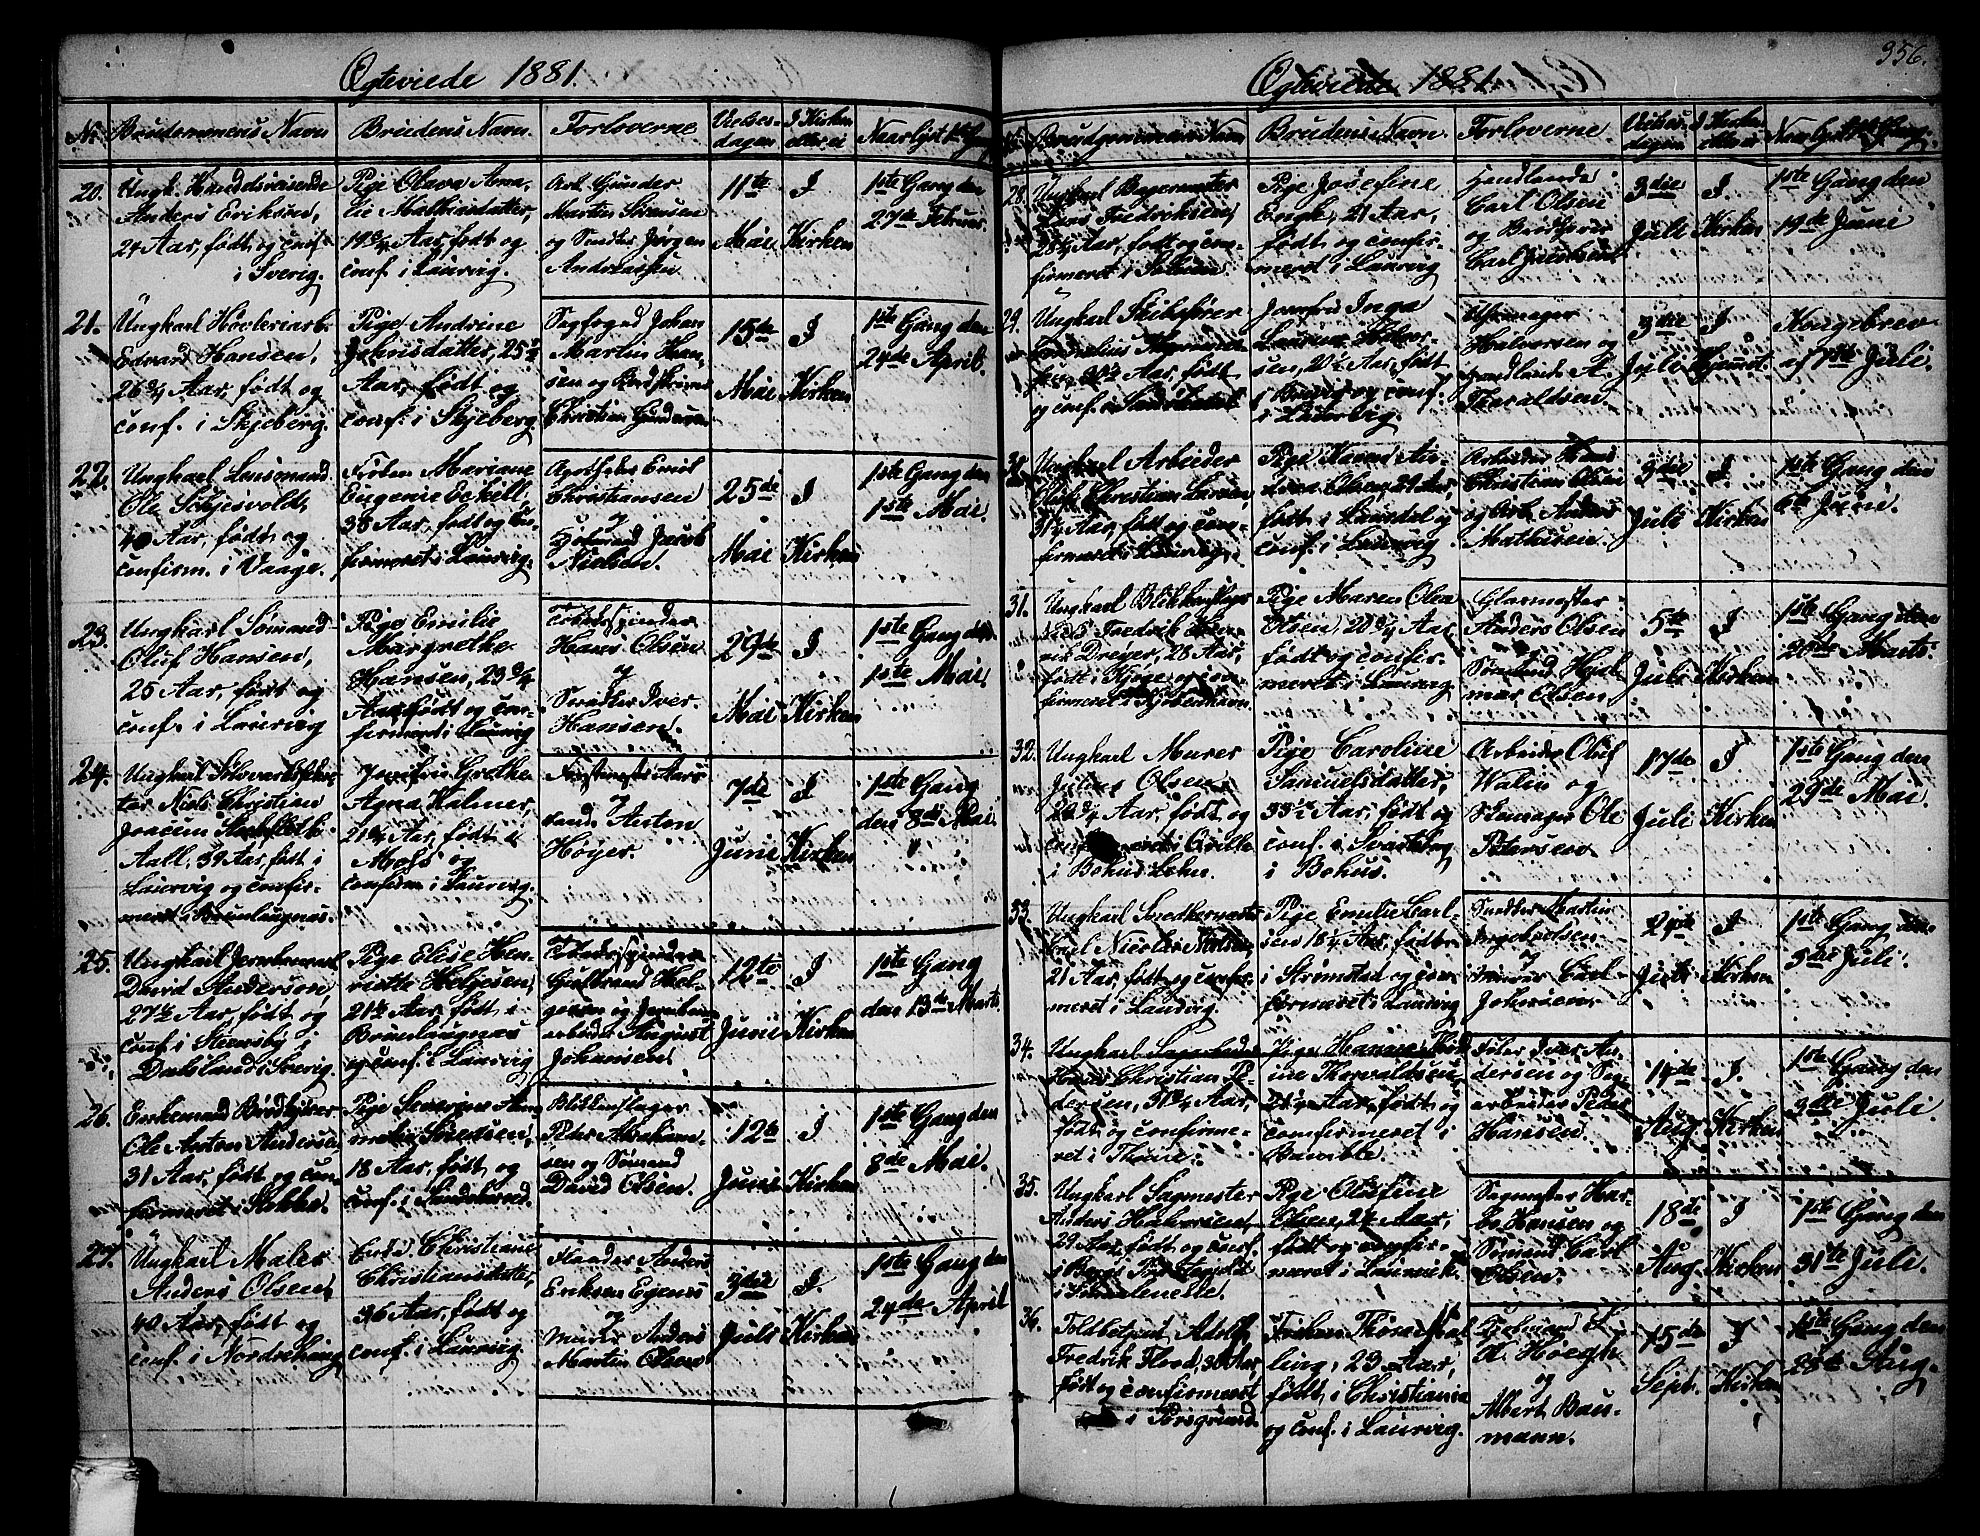 Ægteviede 1881.
No Brudgommens Navn Brudens Navn Forloverne Vielses- I Kirken Naar lyst 1ste Gang
dagen eller ei
20. Ungk.
Anders Eriksen,
24 Aar, født og conf.
i Sverig.
Pige Olava Ama-
lie Mathiasdatter,
19 3/4 Aar, født og
conf. i Laurvig.
Arb. Gunder
Martin Sørensen
og Snedker Jørgen
Andreassen
11te I
Mai Kirken
1ste Gang den
27de Februar.
21. Ungkarl Høvleriarb.
Edvard Hansen,
26 3/4 Aar, født og
conf. i Skjeberg.
Pige Andrine
Johrisdatter, 25 1/2
Aar, født og
conf. i Skjeberg
Sagfogd Johan
Martin Han-
sen og
Christian Gundersen
15de I
Mai Kirken
1ste Gang den
24de April.
22. Ungkarl Lensmand
Ole Schjesvoldt,
40 Aar, født og
confirm. i Vaage.
Frøken Mariane
Eugenie Eckell
38 Aar, født og con-
firmeret i Laurvig.
Apotheker Emil
Christiansen
og
Jacob
Nielsen.
25de I
Mai Kirken
1ste Gang den
1ste Mai.
23. Ungkarl Sømand
Oluf Hansen,
25 Aar, født og
conf. i Laurvig
Pige Emilie
Margrethe
Hansen, 23 3/4
Aar, født og con-
firmeret i Laurvig
Hans Olsen
og
Snedker Iver
Hansen.
29de I
Mai Kirken
1ste Gang den
1ste Mai.
24. Ungkarl
Niels Christian
Joacum
Aall, 39 Aar, født i
Laurvig og confir-
meret i Brunlaugnæs.
Jomfru Grethe
Agna Halmer,
21 3/4 Aar, født i
Moss og
confirm i Laurvig.
Aars
og
Anton
Høyer.
7de I
Juni Kirken
1ste Gang
den 8de Mai.
25. Ungkarl
David Anderson,
27 1/2 Aar, født og
conf. i Steensby i
Dalsland i Sverig.
Pige Elise Hen-
riette Heljesen,
21 1/2 Aar, født i
Brunlaugnæs
og conf. i Laurvig
Gulbrand Hel-
gesen og
arbeider August
Johansen.
12te I
Juni Kirken
1ste Gang
den 13de Marts.
26. Enkemand
Ole Anton Andersen,
31 Aar, født og con-
firmeret i
Pige Severine
Sørensen,
18 Aar, født og
conf. i Sandeherred.
Blikkenslager
Peder Abraham-
sen og Sømand
David Olsen.
12te I
Juni Kirken
1ste Gang den
8de Mai.
27. Ungkarl Maler
Anders Olsen,
40 Aar, født og
conf. i Nordrehaug
Enke Christiane
Christiansdatter,
36 Aar, født og
conf. i Laurvig.
Anders
Eriksen Egenes
og
Murer Anders
Martin Olsen
3die I
Juli Kirken
1ste Gang den
24de April
356.
Ægteviede 1881.
Brudgommens Navn Brudens Navn Forloverne Vielses- I Kirken Naar lyst 1ste Gang.
dagen eller ei
28. Ungkarl Bagermester
Fredriksen,
28 1/4 Aar, født og con-
firmeret i
Pige Josefine
Engh, 21 Aar,
født og confir-
meret i Laurvig
Handlende
Carl Olsen
og
Carl Jacobsen
3die I.
Juli Kirken
1ste Gang den
19de Juni
29. Ungkarl Skibsfører
Cornelius
Aar, født
og conf. i
Jomfru Inga
Laurine Halvor-
sen, 20 1/2 Aar, født
i Brevig og conf.
i Laurvig.
Halvorsen og
Handlende A.
Thoraldsen.
3die I
Juli Hjemmet.
Kongebrev
af 1ste Juli.
30. Ungkarl Arbeider
Christian Larsen,
31 1/2 Aar, født og con-
firmeret i Laurvig.
Pige Hanna An-
drea Olsen, 21 Aar,
født i Laurdal og
conf. i Laurvig
Arbeider Hans
Christian Olsen
og Arb. Anders
Mathisen.
3die I
Juli Kirken
1ste Gang den
6te Juni.
31. Ungkarl Blikkenslager
Fredrik Hen-
rik Dreyer, 28 Aar,
født i Kjøge og con-
firmeret i Kjøbenhavn.
Pige Maren Olea
Olsen, 20 3/4 Aar
født og confir-
meret i Laurvig
Glarmester
Anders Olsen
og
Sømand Hjal-
mar Olsen.
5te I
Juli Kirken
1ste Gang den
20de Marts.
32. Ungkarl Murer
Julius Olsen,
29 3/4 Aar, født og
conf i Qville
i Bohus Lehn.
Pige Caroline
Samuelsdatter,
33 1/2 Aar, født og
conf. i Svarteborg
i Bohus.
Arbeider Oluf
Walin og
Ole
Petersen.
17de I
Juli Kirken
1ste Gang den
29de Mai.
33. Ungkarl Snedkermester
Carl Nicolai Nielsen,
21 Aar, født og confir-
meret i Laurvig.
Pige Emilie Carl-
sen 18 1/4 Aar, født
i Strømstad og con-
firmeret i Laurvig
Snedker Martin
Ingebretsen
og
Murer Carl
Johnsen.
24de I
Juli Kirken
1ste Gang den
3die Juli.
34. Ungkarl
Hans Christian Pe-
dersen, 31 3/4 Aar,
født og confirme-
ret i Thune.
Pige Hanine
ine Thorvaldsen,
21 3/4 Aar, født og
confirmeret i
Bamble.
Feier Iver An-
dersen og Sag-
arbeider Peder
Hansen.
14de I.
Aug Kirken
1ste Gang den
3die Juli
35. Ungkarl Sagmester
Anders Halvorsen,
29 Aar, født og conf.
i
Pige Olefine
Olsen, 24 Aar,
født og confir-
meret i Laurvik.
Sagmester
Hansen og
Sømand Carl
Olsen.
18de I
Aug. Kirken
1ste Gang den
31te Juli.
36. Toldbetjent Adolf
Fredrik Flood, 30 Aar,
født og confirmeret
i Porsgrund
Frøken
ling, 23 Aar,
født i Christiania
og conf. i Laurvig.
Høegh
og
Albert Bau-
mann.
15de I
Sept. Kirken
1ste Gang den
28de Aug.